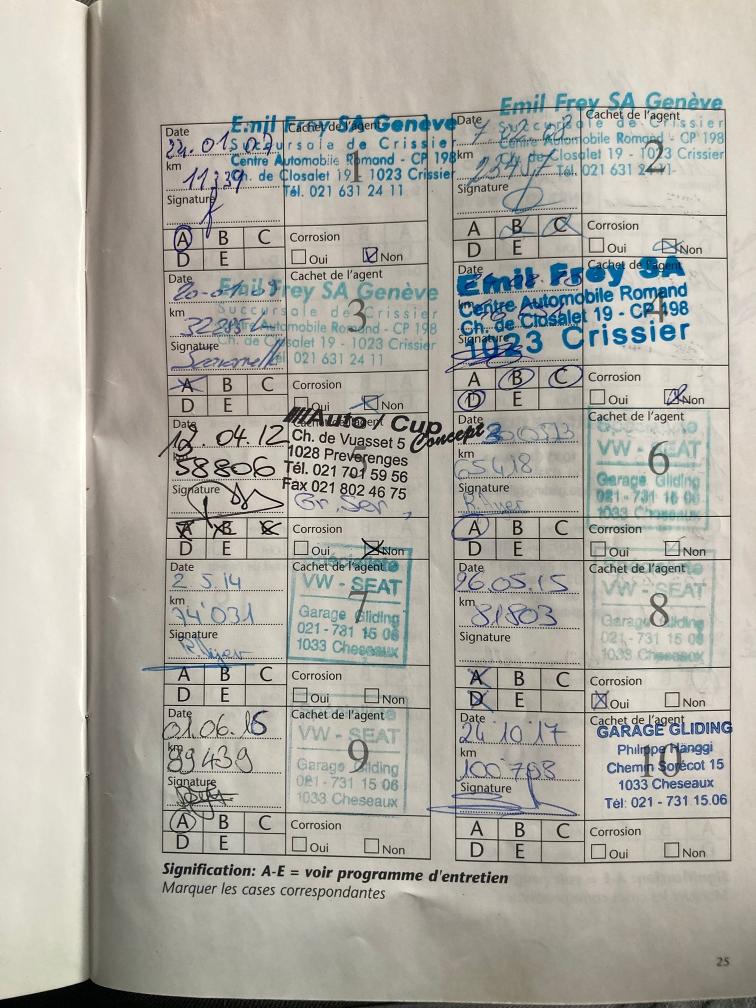 Date
Cachet de l'agent
Emil Frey SA Genève
24.01.07
Succursale de Crissier
km
Centre Automobile Romand - CP 198
11239
Ch. de Closalet 19 - 1023 Crissier
1
Signature
Tél. 021 631 24 11
A B C
D E
Corrosion
Oui Non
Emil Frey SA Genève
Date
Cachet de l'agent
Succursale de Crissier
Centre Automobile Romand - CP 198
km
Ch. de Closalet 19 - 1023 Crissier
Tél. 021 631 24 11
2
Signature
A B C
D E
Corrosion
Oui Non
Cachet de l'agent
Emil Frey SA Genève
Succursale de Crissier
km
Centre Automobile Romand - CP 198
Ch. de Closalet 19 - 1023 Crissier
3
Signature
Tél. 021 631 24 11
A B C
D E
Corrosion
Oui Non
Cachet de l'agent
Emil Frey SA
km
Centre Automobile Romand
Ch. de Closalet 19 - CP 198
4
Signature
1023 Crissier
A B C
D E
Corrosion
Oui Non
Date
Cachet de l'agent
Auto Cup
Concept
18.04.12
Ch. de Vuasset 5
km
1028 Preverenges
58806
Tél. 021 701 59 56
5
Signature
Fax 021 802 46 75
Gr. Ser.
A B C
D E
Corrosion
Oui Non
Date
Cachet de l'agent
Spécialiste
VW - SEAT
km
65418
6
Garage Gliding
Signature
021 - 731 15 06
1033 Cheseaux
A B C
D E
Corrosion
Oui Non
Date
Cachet de l'agent
Spécialiste
2.5.14
VW - SEAT
km
74'031
7
Garage Gliding
Signature
021 - 731 15 06
1033 Cheseaux
A B C
D E
Corrosion
Oui Non
Date
Cachet de l'agent
26.05.15
VW - SEAT
km
81803
8
Garage Gliding
Signature
021 - 731 15 06
1033 Cheseaux
A B C
D E
Corrosion
Oui Non
Date
Cachet de l'agent
01.06.16
VW - SEAT
km
89439
9
Garage Gliding
Signature
021 - 731 15 06
1033 Cheseaux
A B C
D E
Corrosion
Oui Non
Date
Cachet de l'agent
24 10 17
GARAGE GLIDING
km
Philippe Hänggi
100'798
10
Chemin Sorécot 15
Signature
1033 Cheseaux
Tél: 021 - 731 15.06
A B C
D E
Corrosion
Oui Non
Signification: A-E = voir programme d'entretien
Marquer les cases correspondantes
25